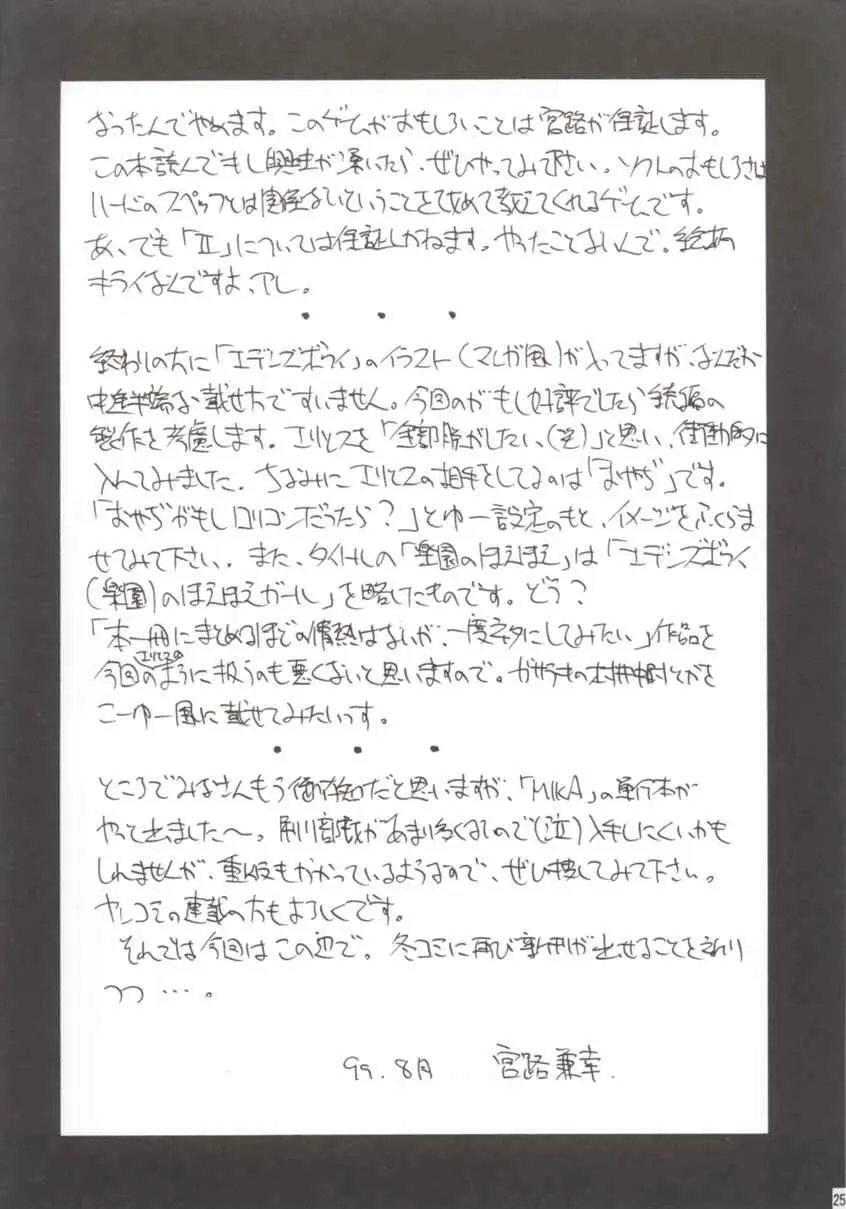 なったんでやめます。このゲームがおもしろいことは宮路が保証します。
この本読んでもし興味が湧いたら、ぜひやってみて下さい。ソフトのおもしろさは
ハードのスペックとは関係ないということを改めて教えてくれるゲームです。
あ、でも「Ⅱ」については保証しかねます。やったことないんで。絵柄
キライなんですよ、アレ。
・ ・ ・
終わしの方に「エデンズボゥイ」のイラスト(マンガ風)が入ってますが、なんだか
中途半端な載せ方ですいません。今回のがもし好評でしたら続編の
製作を考慮します。エリシスを「全部脱がしたい(笑)」と思い、衝動的に
入れてみました。ちなみにエリシスの相手をしてるのは「おやぢ」です。
「おやぢがもしロリコンだったら?」とゆー設定のもと、イメージをふくらま
せてみて下さい。また、タイトルの「楽園のほえほえ」は「エデンズボゥイ
(楽園)のほえほえガール」を略したものです。どう?
「本一冊にまとめるほどの情熱はないが、一度ネタにしてみたい」作品を
今回のエリシスのように扱うのも悪くないと思いますので。
こーゆー風に載せてみたいっす。
・ ・ ・
ところでみなさんもう御存知だと思いますが、「MIKA」の単行本が
やっと出ました〜。刷り部数があまり多くないので(泣)入手しにくいかも
しれませんが、重版もかかっているようなので、ぜひ捜してみて下さい。
ヤンコミの連載の方もよろしくです。
それでは今回はこの辺で。冬コミに再び新刊が出せることを祈り
つつ…。
99.8月 宮路兼幸.
25